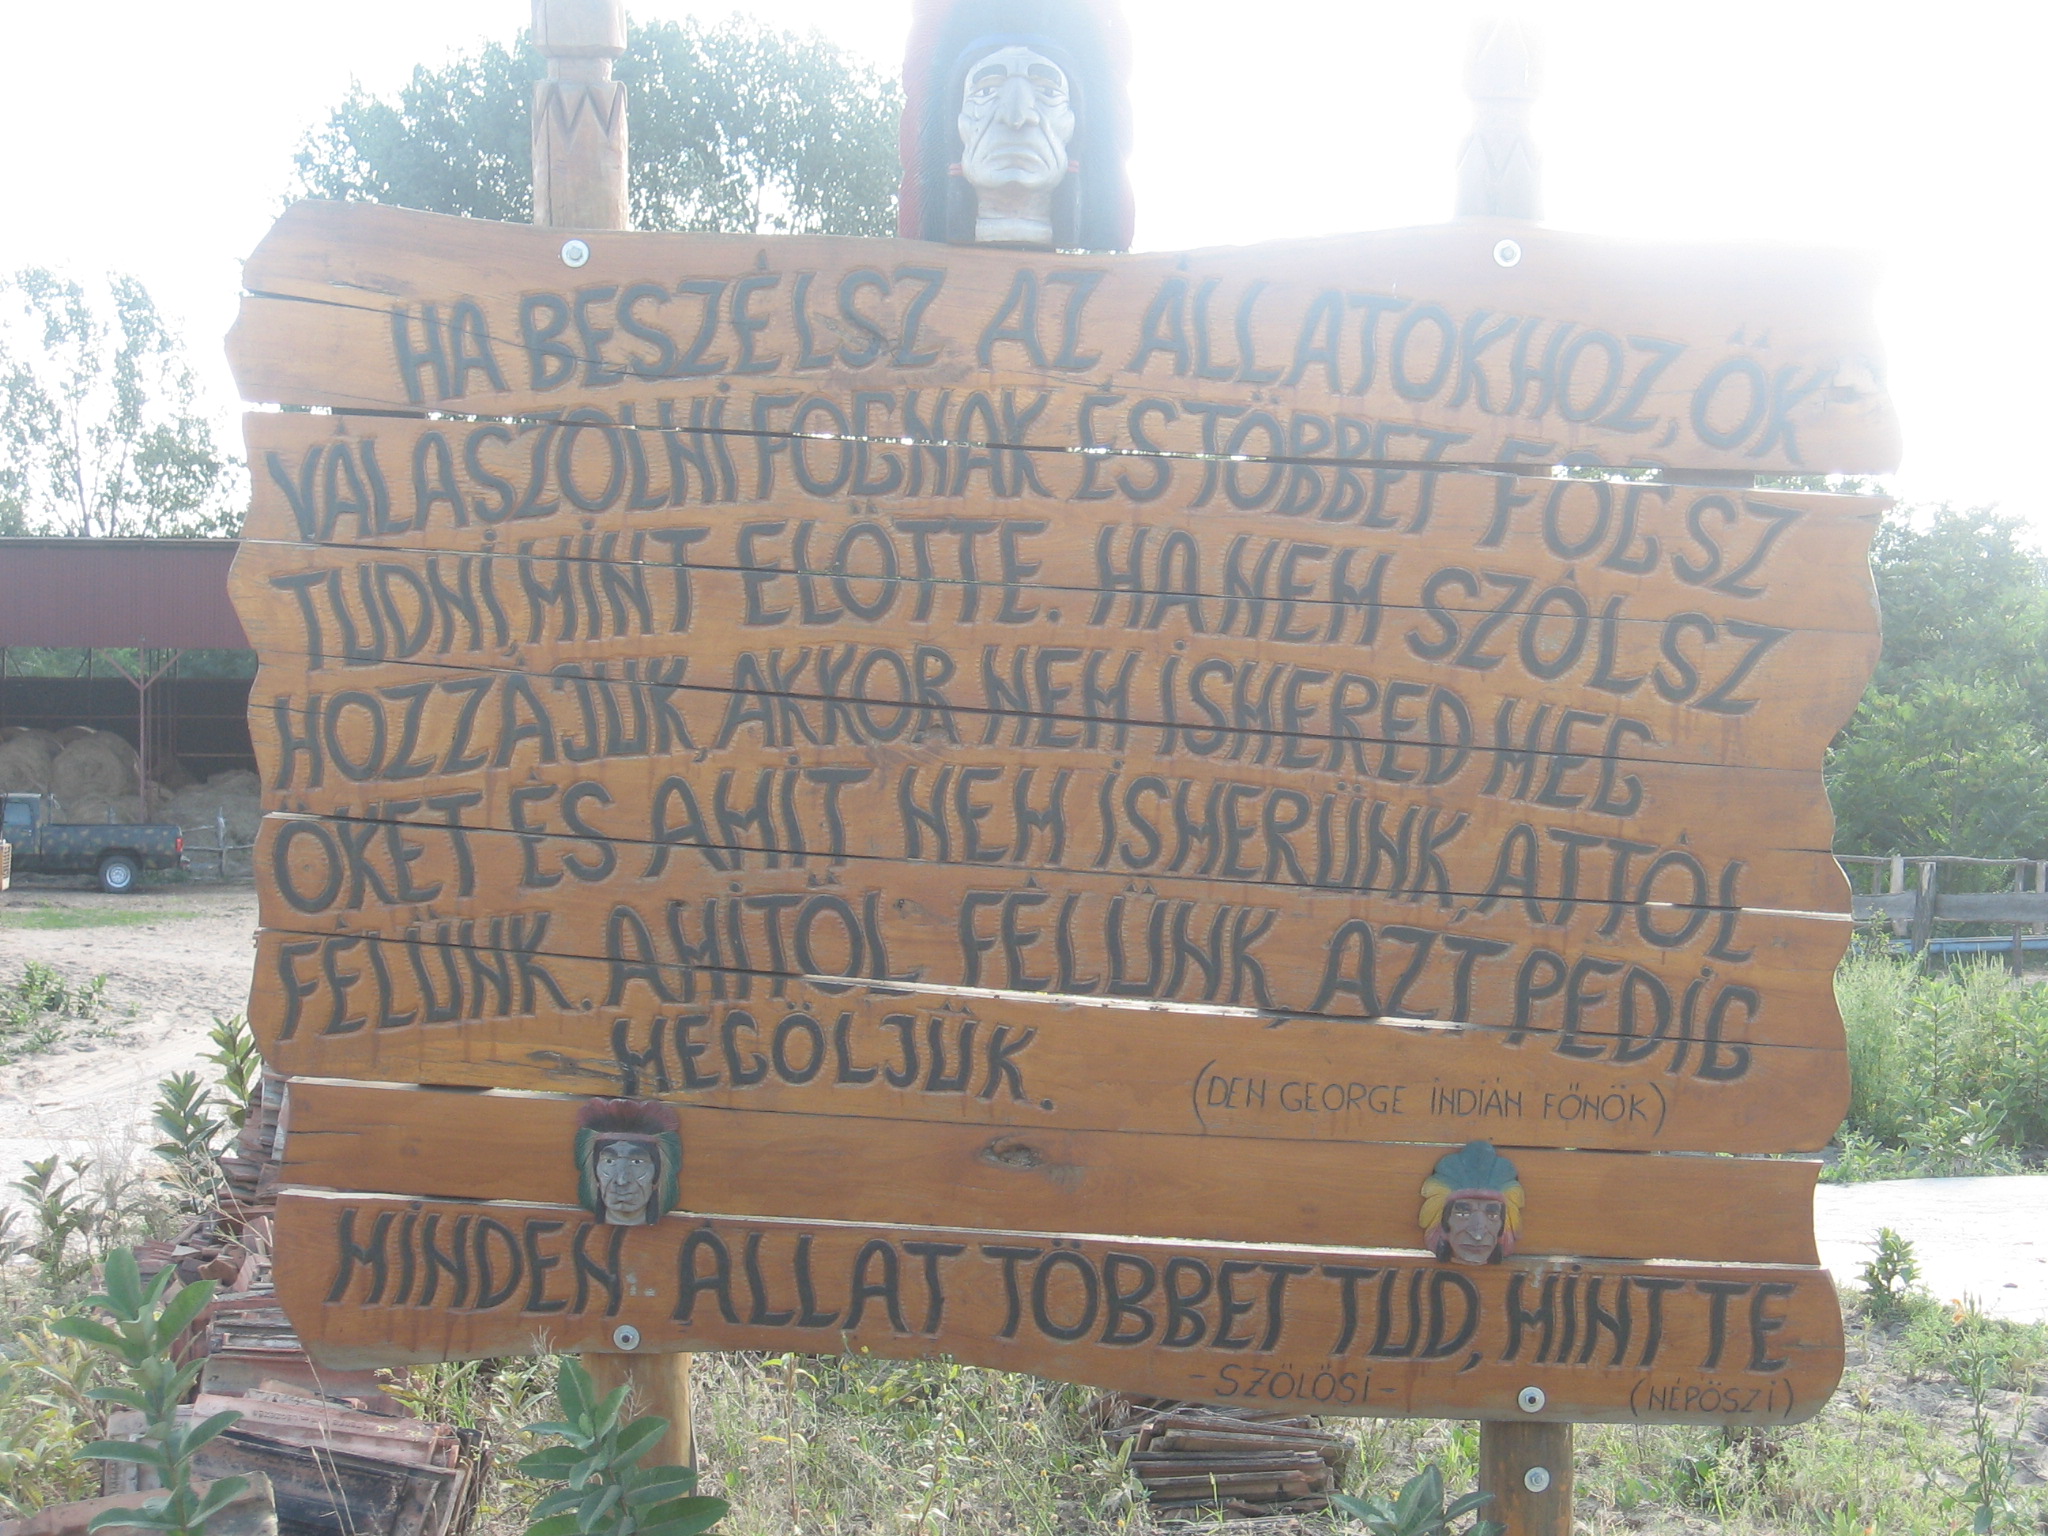 HA BESZÉLSZ AZ ÁLLATOKHOZ, ŐK
VÁLASZOLNI FOGNAK ÉS TÖBBET FOGSZ
TUDNI, MINT ELŐTTE. HA NEM SZÓLSZ
HOZZÁJUK, AKKOR NEM ISMERED MEG
ŐKET ÉS AMIT NEM ISMERÜNK, ATTÓL
FÉLÜNK. AMITŐL FÉLÜNK, AZT PEDIG
MEGÖLJÜK.
(DEN GEORGE INDIÁN FŐNÖK)
MINDEN ÁLLAT TÖBBET TUD, MINT TE
-SZÖLÖSI- (NÉPÖSZI)